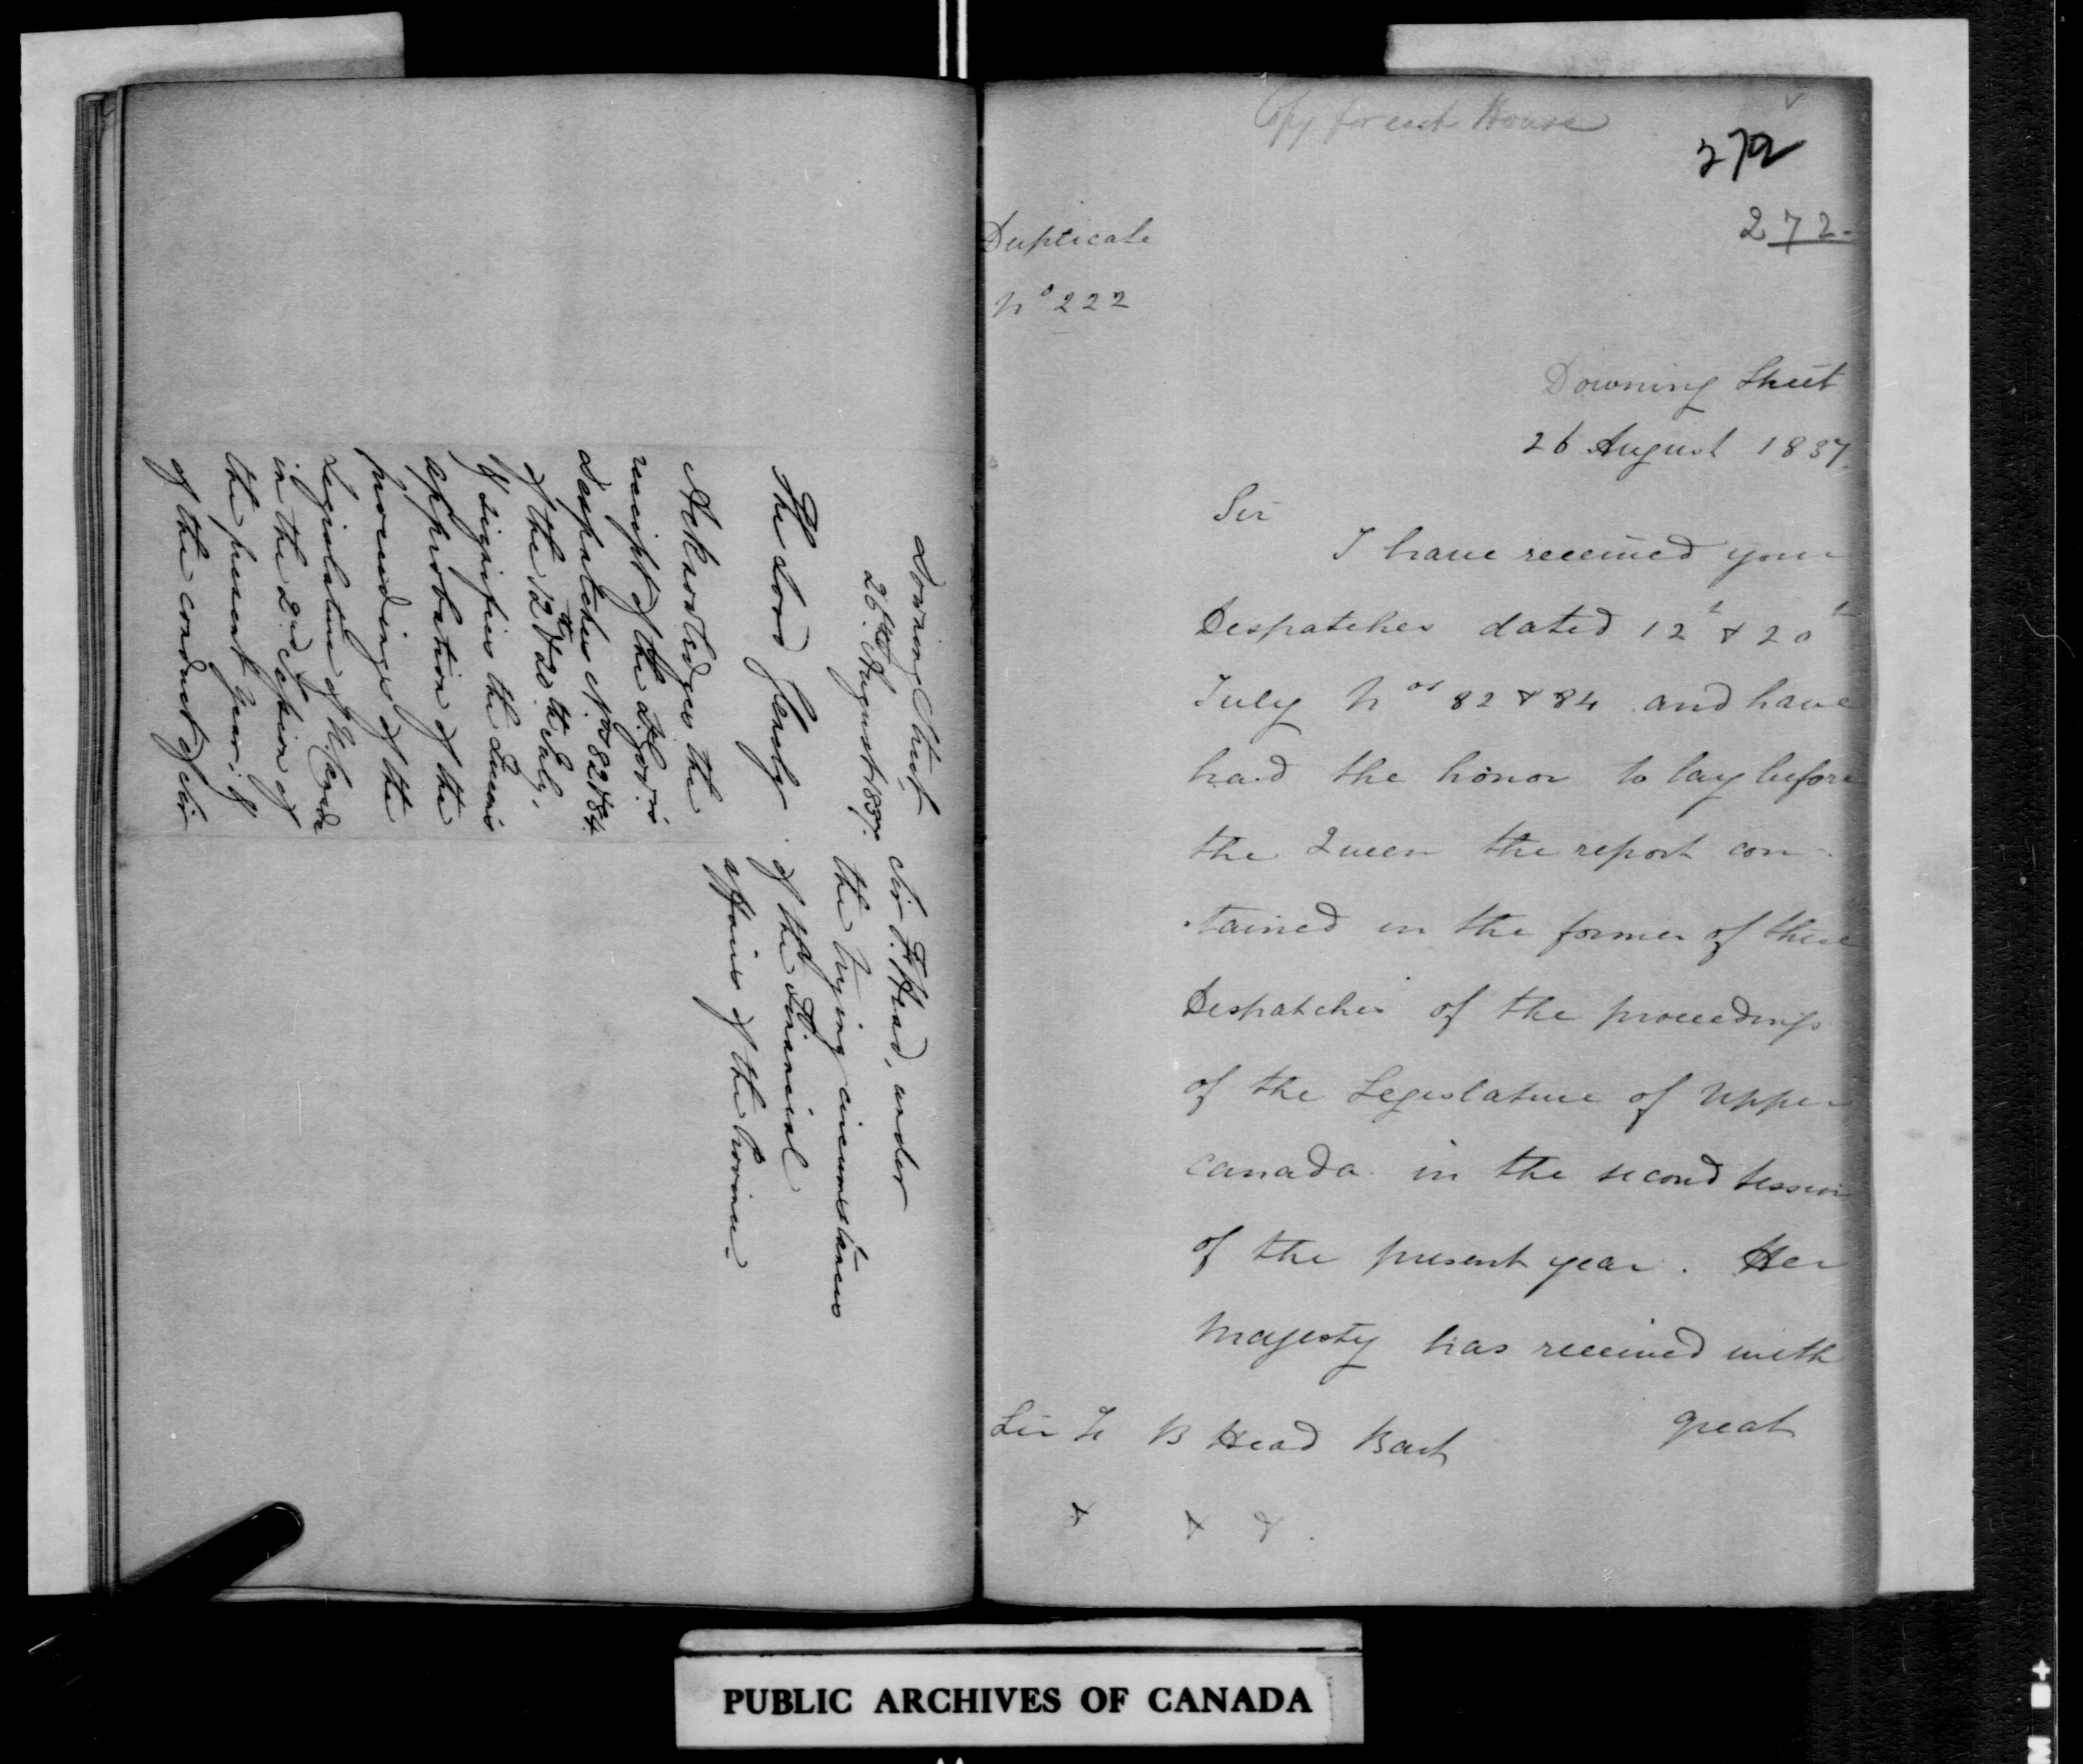 Downing Street
26th. August 1837.
The Lord Glenelg
Acknowledges the
receipt of the Lt. Gov:rs
Despatches Nos 82 & 84.
of the 12th & 20th July,
& signifies the Queen's
approbation of the
proceedings of the
Legislature of U. Canada
in the 2nd Session of
the present Year; &
of the conduct of Sir
Sir F. Head, under
the trying circumstances
of the Financial
affairs of the Province.
Copy for each House
272
272.
Duplicate
No 222
Downing Street
26 August 1837.
Sir
I have received your
Despatches dated 12th & 20th
July Nos 82 & 84 and have
had the honor to lay before
the Queen the report con-
-tained in the former of these
Despatches of the proceedings
of the Legislature of Upper
Canada in the second session
of the present year. Her
Majesty has received with
great
Sir F B Head Bart
& & &.
PUBLIC ARCHIVES OF CANADA